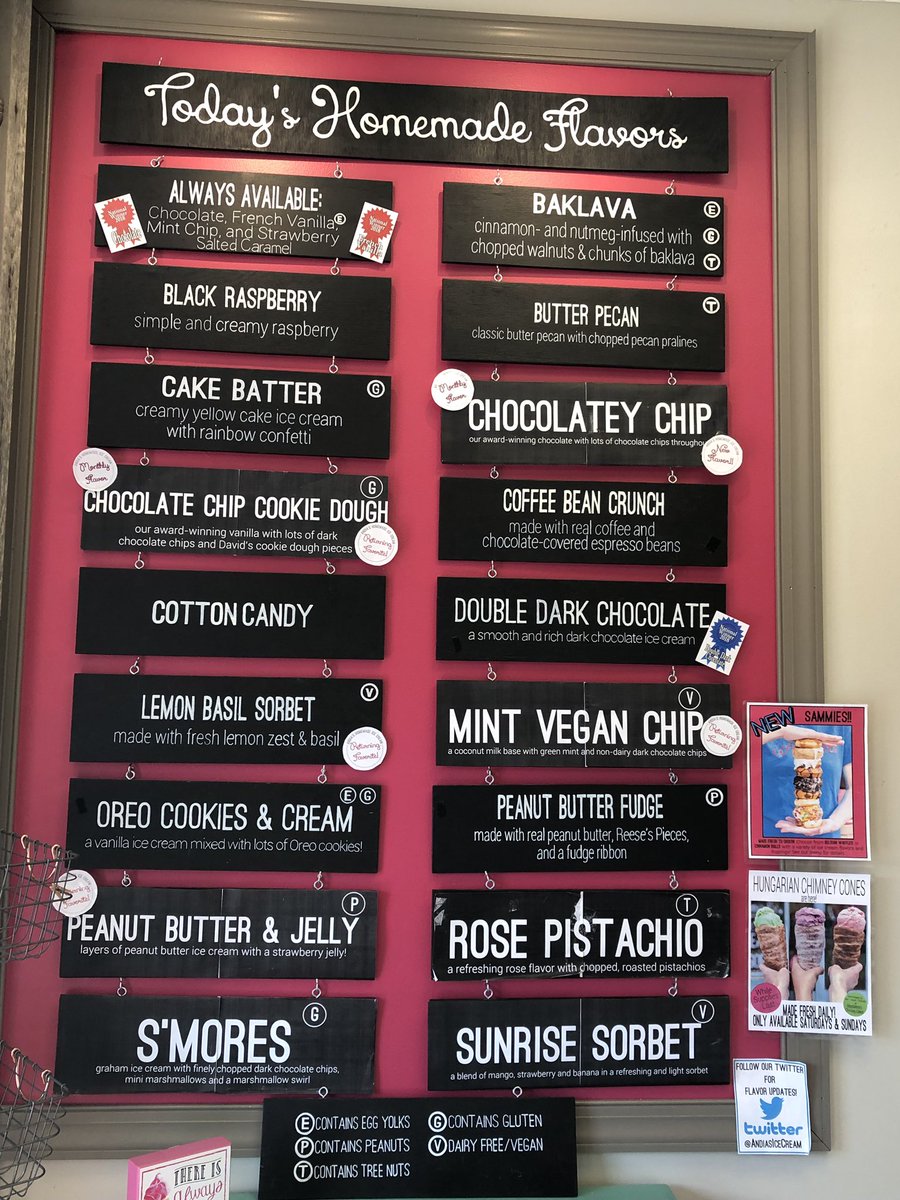 Today's Homemade Flavors
ALWAYS AVAILABLE:
Chocolate, French Vanilla, E
Mint Chip, and Strawberry
Salted Caramel
National
Winner
Chocolate
National
Winner
BLACK RASPBERRY
simple and creamy raspberry
CAKE BATTER G
creamy yellow cake ice cream
with rainbow confetti
Monthly
Flavor
G
CHOCOLATE CHIP COOKIE DOUGH
our award-winning vanilla with lots of dark
chocolate chips and David's cookie dough pieces
Returning
Favorite!
COTTON CANDY
V
LEMON BASIL SORBET
made with fresh lemon zest & basil
Returning
Favorite!
E G
OREO COOKIES & CREAM
a vanilla ice cream mixed with lots of Oreo cookies!
Favorite!
P
PEANUT BUTTER & JELLY
layers of peanut butter ice cream with a strawberry jelly!
G
S'MORES
graham ice cream with finely chopped dark chocolate chips,
mini marshmallows and a marshmallow swirl
BAKLAVA E
cinnamon- and nutmeg-infused with G
chopped walnuts & chunks of baklava T
BUTTER PECAN T
classic butter pecan with chopped pecan pralines
Monthly
Flavor
CHOCOLATEY CHIP
our award-winning chocolate with lots of chocolate chips throughout
New
Flavor!!
COFFEE BEAN CRUNCH
made with real coffee and
chocolate-covered espresso beans
DOUBLE DARK CHOCOLATE
a smooth and rich dark chocolate ice cream
National
Winner
V
MINT VEGAN CHIP
a coconut milk base with green mint and non-dairy dark chocolate chips
Returning
Favorite!
PEANUT BUTTER FUDGE P
made with real peanut butter, Reese's Pieces,
and a fudge ribbon
T
ROSE PISTACHIO
a refreshing rose flavor with chopped, roasted pistachios
V
SUNRISE SORBET
a blend of mango, strawberry and banana in a refreshing and light sorbet
E CONTAINS EGG YOLKS
P CONTAINS PEANUTS
T CONTAINS TREE NUTS
G CONTAINS GLUTEN
V DAIRY FREE/VEGAN
NEW SAMMIES!!
HUNGARIAN CHIMNEY CONES
are here!
While
Supplies
Last!
MADE FRESH DAILY!
ONLY AVAILABLE SATURDAYS & SUNDAYS
FOLLOW OUR TWITTER
FOR
FLAVOR UPDATES!
twitter
@ANDIASICECREAM
THERE IS
Always